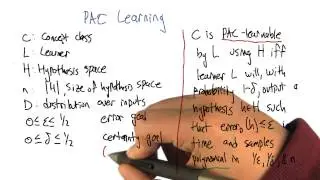 PAC Learning
C: Concept class
L: Learner
H: Hypothesis space
n: |H|, size of hypothesis space
D: distribution over inputs
0≤ε≤1/2 error goal
0≤δ≤1/2 certainty goal
(
C is PAC-learnable
by L using H iff
learner L will, with
probability 1-δ, output a
hypothesis h∈H such
that error_D(h)≤ε in
time and samples
polynomial in 1/ε, 1/δ, & n